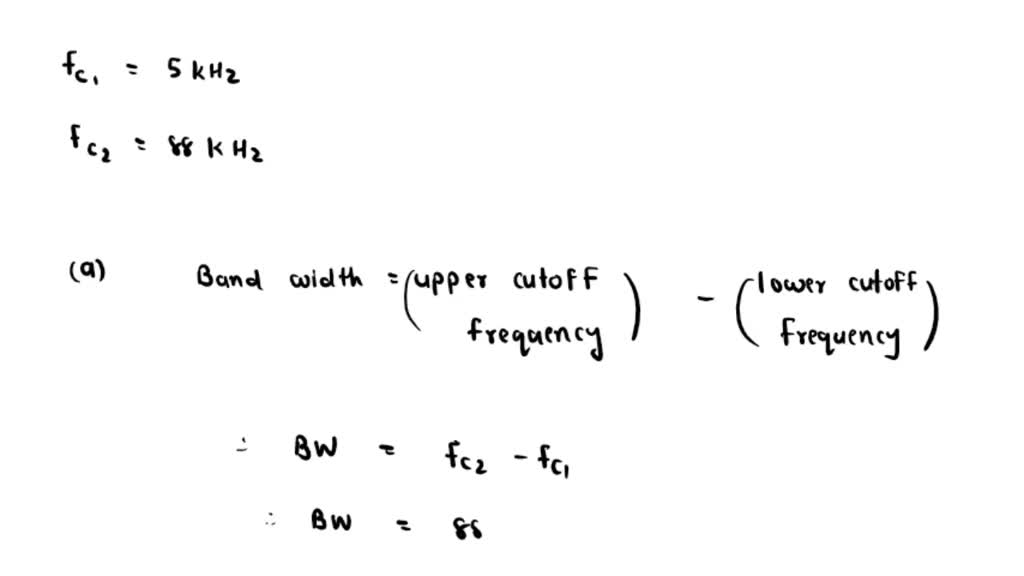 fc1 = 5 kHz
fc2 = 88 kHz
(a) Band width = (upper cutoff frequency) - (lower cutoff frequency)
∴ BW = fc2 - fc1
∴ BW = 88